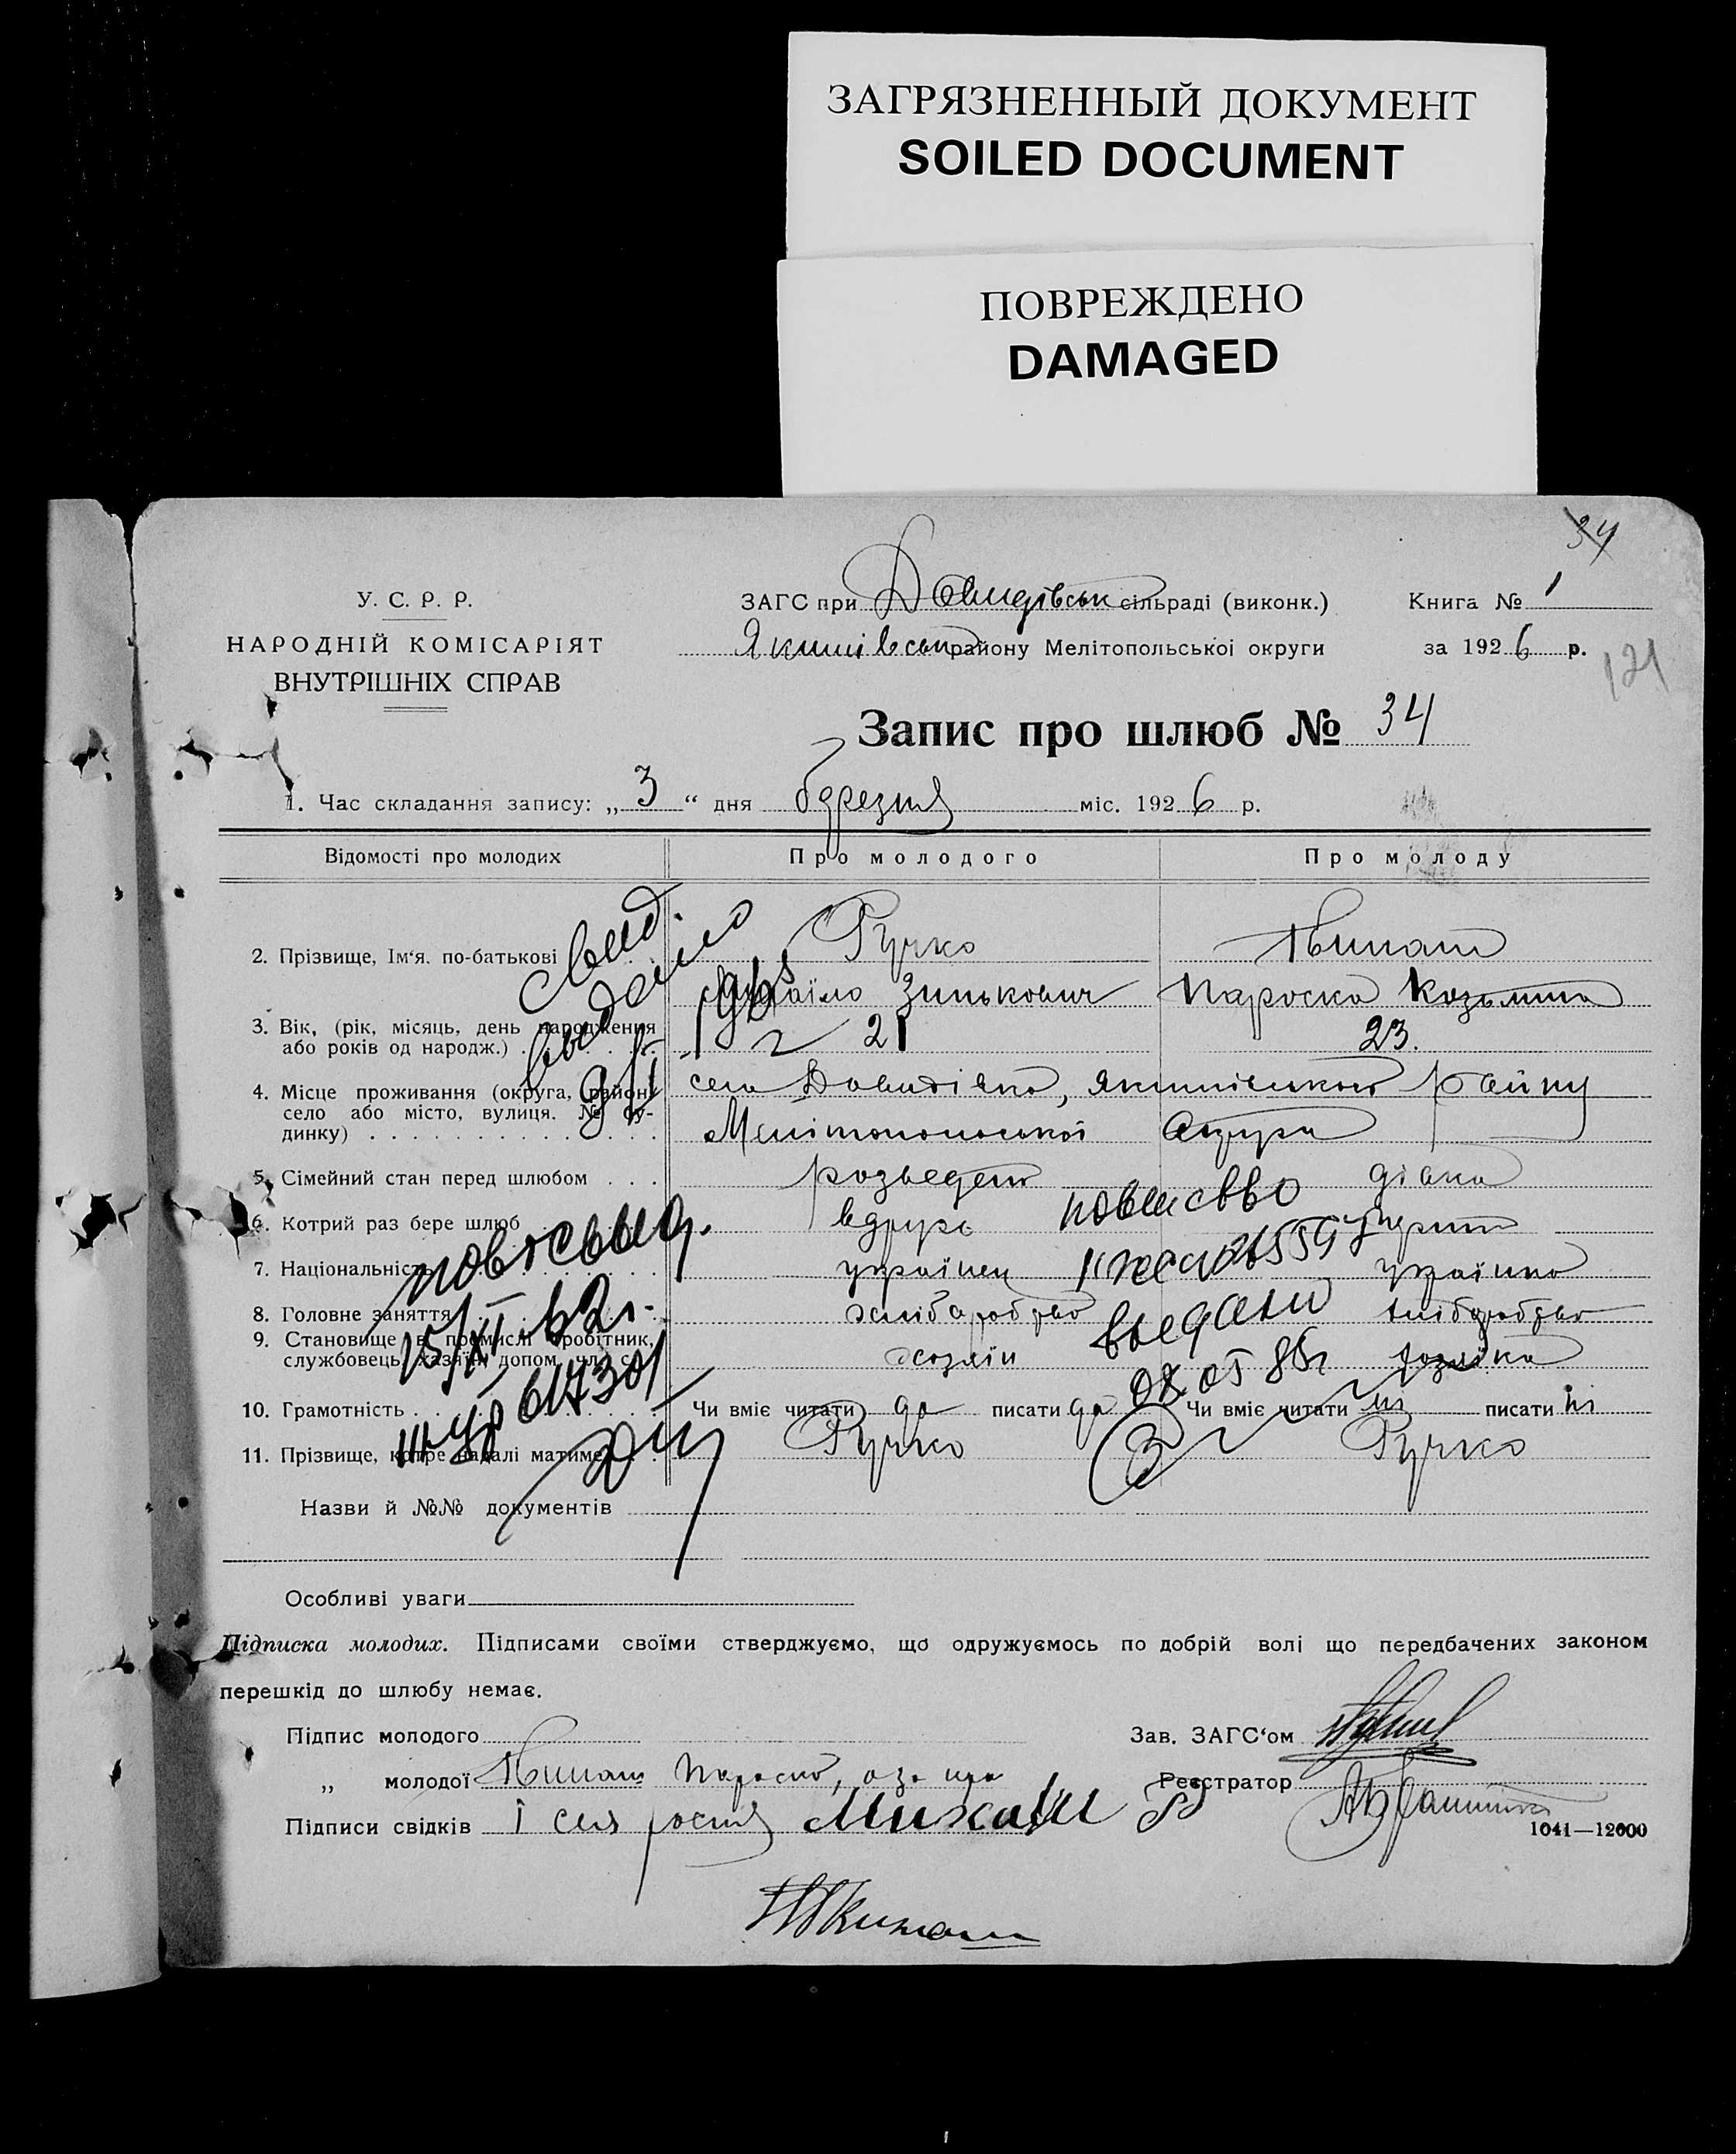 ЗАГРЯЗНЕННЫЙ ДОКУМЕНТ
SOILED DOCUMENT
ПОВРЕЖДЕНО
DAMAGED
34
У. С. Р. Р.
НАРОДНІЙ КОМІСАРІЯТ
ВНУТРІШНІХ СПРАВ
ЗАГС при Давидівськ сільраді (виконк.)
Якимівськ району Мелітопольської округи
Книга № 1
за 1926 р.
121
Запис про шлюб № 34
1. Час складання запису: „3“ дня березня міс. 1926 р.
Відомості про молодих Про молодого Про молоду
2. Прізвище, Ім‘я. по-батькові Ручко
Михаіло Зинькович Параска Козьмина
3. Вік, (рік, місяць, день народження
або років од народж.) 21 23.
4. Місце проживання (округа, район,
село або місто, вулиця. № бу-
динку)
село Давидівка, Якимівського району
Мелітопольської округи
5. Сімейний стан перед шлюбом розведен дівка
6. Котрий раз бере шлюб вдруге
7. Національність українец українка
8. Головне заняття хліборобство хліборобство
9. Становище в промислі робітник,
службовець, хазяїн, допом. чл. с. хозяїн хозяїка
10. Грамотність Чи вміє читати да писати да Чи вміє читати ні писати ні
11. Прізвище, котре надалі матиме Ручко Ручко
свид.
повт. свид.
15/XI 62г.
повт свво
выдано
08.05 85г
Назви й №№ документів
Особливі уваги
Підписка молодих. Підписами своїми стверджуємо, що одружуємось по добрій волі що передбачених законом
перешкід до шлюбу немає.
Підпис молодого
„ молодої
Підписи свідків
Зав. ЗАГС‘ом
Реєстратор
1041—12000